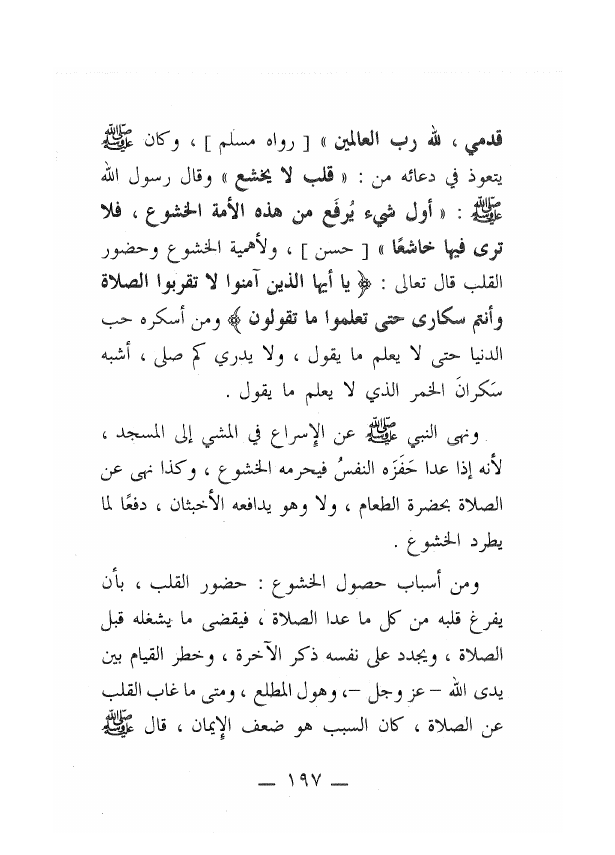 قدمي ، لله رب العالمين » [ رواه مسلم ] ، وكان ﷺ
يتعوذ في دعائه من : « قلب لا يخشع » وقال رسول الله
ﷺ : « أول شيء يُرفَع من هذه الأمة الخشوع ، فلا
ترى فيها خاشعًا » [ حسن ] ، ولأهمية الخشوع وحضور
القلب قال تعالى : ﴿ يا أيها الذين آمنوا لا تقربوا الصلاة
وأنتم سكارى حتى تعلموا ما تقولون ﴾ ومن أسكره حب
الدنيا حتى لا يعلم ما يقول ، ولا يدري كم صلى ، أشبه
سَكرانَ الخمر الذي لا يعلم ما يقول .
ونهى النبي ﷺ عن الإسراع في المشي إلى المسجد ،
لأنه إذا عدا حَفَزَه النفسُ فيحرمه الخشوع ، وكذا نهى عن
الصلاة بحضرة الطعام ، ولا وهو يدافعه الأخبثان ، دفعًا لما
يطرد الخشوع .
ومن أسباب حصول الخشوع : حضور القلب ، بأن
يفرغ قلبه من كل ما عدا الصلاة ، فيقضى ما يشغله قبل
الصلاة ، ويجدد على نفسه ذكر الآخرة ، وخطر القيام بين
يدى الله – عز وجل –، وهول المطلع ، ومتى ما غاب القلب
عن الصلاة ، كان السبب هو ضعف الإيمان ، قال ﷺ
— ١٩٧ —